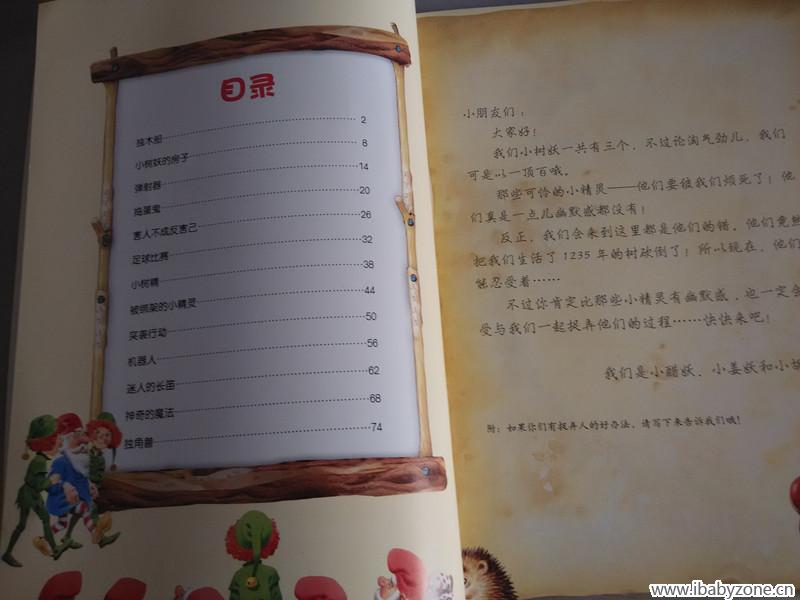 目录
独木船 2
小树妖的房子 8
弹射器 14
捣蛋鬼 20
害人不成反害己 26
足球比赛 32
小树精 38
被绑架的小精灵 44
突袭行动 50
机器人 56
迷人的长笛 62
神奇的魔法 68
独角兽 74
小朋友们：
大家好！
我们小树妖一共有三个，不过论淘气劲儿，我们
可是以一顶百哦。
那些可怜的小精灵——他们要被我们烦死了！他
们真是一点儿幽默感都没有！
反正，我们会来到这里都是他们的错，他们竟然
把我们生活了1235年的树砍倒了！所以现在，他们
能忍受着……
不过你肯定比那些小精灵有幽默感，也一定会
受与我们一起捉弄他们的过程……快快来吧！
我们是小醋妖、小姜妖和小胡
附：如果你们有捉弄人的好办法，请写下来告诉我们哦！
www.ibabyzone.cn